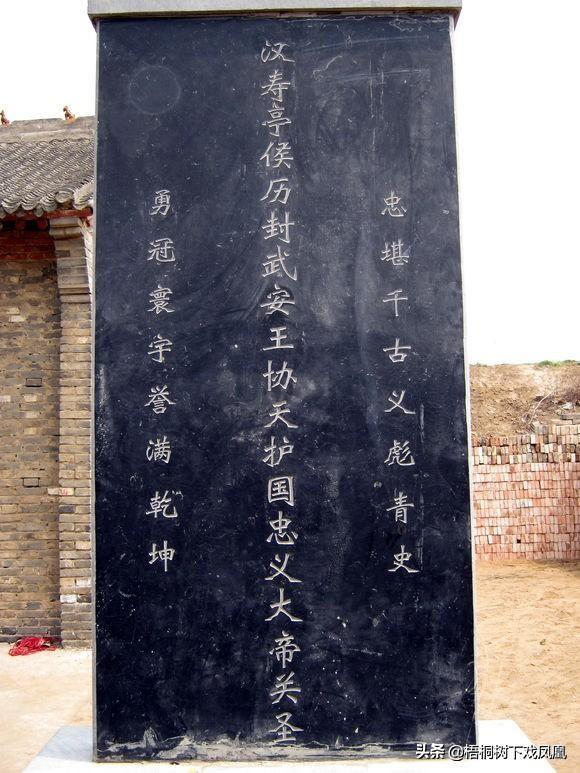 忠堪千古义彪青史
汉寿亭侯历封武安王协天护国忠义大帝关圣
勇冠寰宇誉满乾坤
头条@梧桐树下戏凤凰